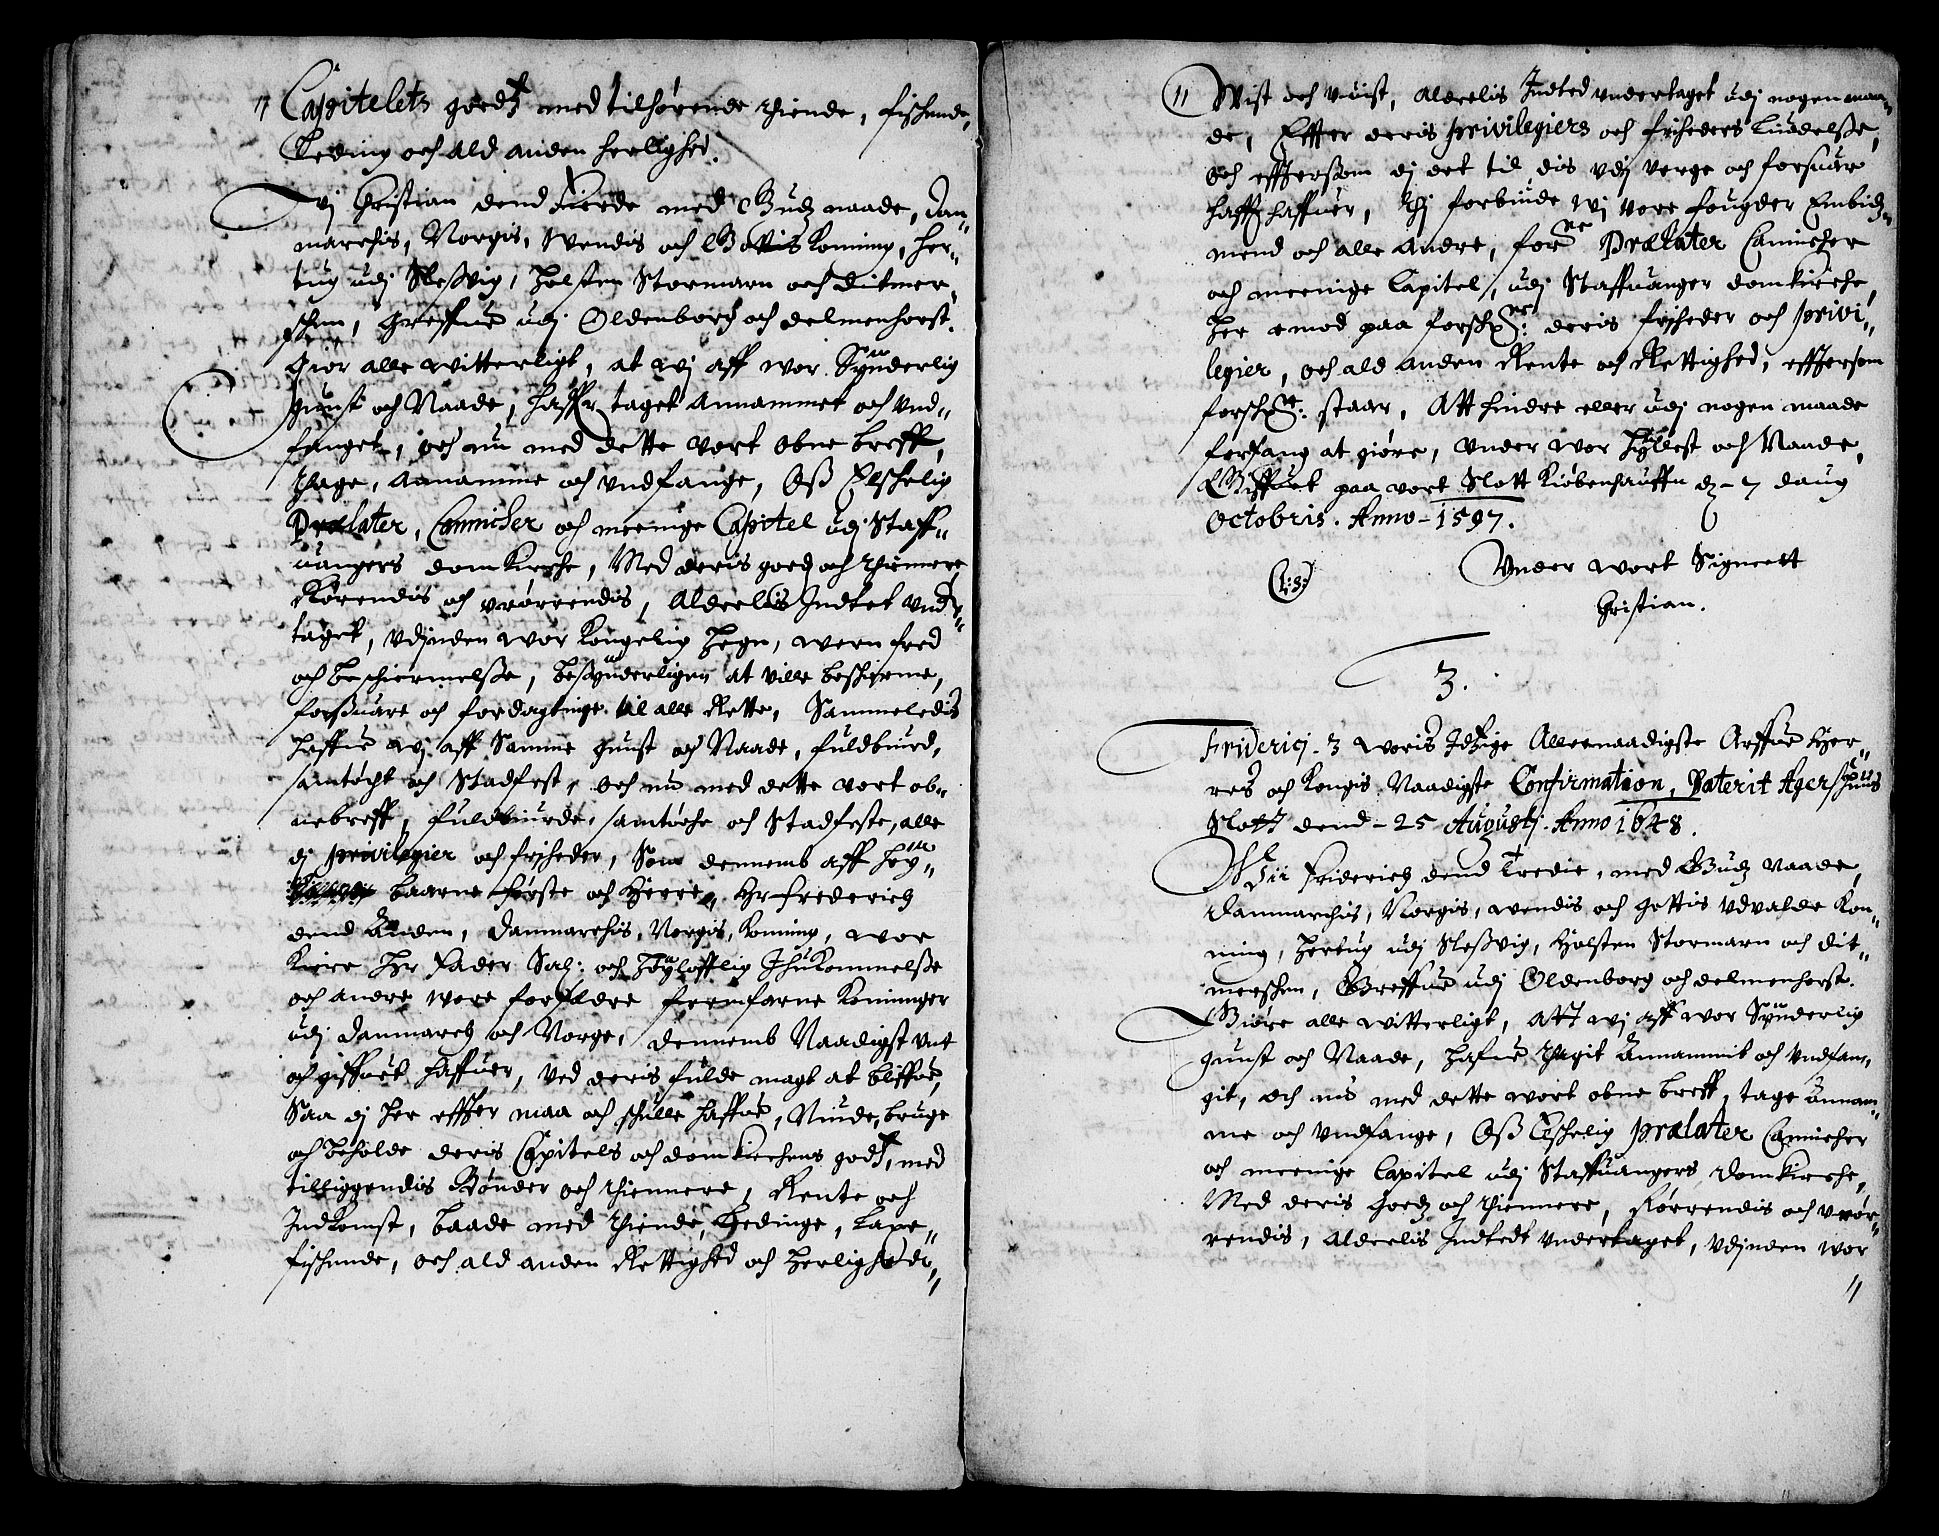 " Capitelets goedz med tilhørende thiende, fischende,
Leding och ald anden herlighed.
Wj Christian dend Fierde med Gudz naade, Dan„
marchis, Norgis, Wendis och Gottis Koning, Her„
tug udj Sleßvig, Holsten Stormarn och Ditmer„
schen, Greffue udj Oldenborg och delmenhorst.
Giør alle witterligt, at wj aff wor Synderlig
gunst och Naade, haffr taget Annammet och und„
fanget, och nu med dette vort obne breff,
thage, annamme och undfange, Oß Elschelig
Prælater, Cannicher och meenige Capitel udj Staff„
uangers domkirche, Med deris goedz och thienere
Rørendis och urørrendis, Aldeelis Indtet und„
taget, Udjnden wor Kongelig Hegn, wern fred
och beschiermelße, besynderligen at ville beschierme,
forsuare och fordagtinge til alle Rette, Sammeledis
haffue wj aff Samme gunst och Naade, fuldburd,
samtøcht och Stadfest, och nu med dette vort ob„
nebreff, fuldburde, samtøche och Stadfeste, alle
dj privilegier och frjheder, Som dennemb aff høy„
baarne første och Herre, Hr Frederich
dend Anden, Danmarchis, Norgis, Koning, wor
Kiere Hr Fader Sal: och Høyloflig Ihukommelße
och andre wore forfædre fremfarne Koninger
udj Danmarch och Norge, dennemb Naadigst unt
och giffuet haffuer, ved deris fulde magt at bliffue,
Saa dj her effter maa och schulle haffue, Niude, bruge
och beholde deris Capitels och domkirchens godz, med
tilliggendis Bønder och thiennere, Rente och
Indkomst, baade med thiende, Ledinge, Laxe„
fischende, och ald anden Rettighed och Herlighedr„
" Wist och uuist, aldeelis Indted undertaget udj nogen maa„
de, Effter deris privilegiers och friheders Liudelße,
och effterßom dj det til dis udj verge och forsuar
hafft haffuer, Thj forbinde wj vore fougder Embidz„
mend och alle andre, forne Prælater Cannicher
och meenige Capitel, udj Staffuanger domkirche,
her emod paa forschne: deris frjheder och privi„
legier, och ald anden Rente och Rettighed, effterßom
forschne: staar, Att hindre eller udj nogen maade
forfang at giøre, under wor Hyllest och Naade,
Giffuet paa vort Slott Kiøbenhauffn dj 7 daug
Octobris. Anno 1597.
Under wort Signett
(L:S:)
Christian.
3.
Friderici 3 woris Itzige Allernaadigste Arffue Her„
res och Kongis Naadigste Confirmation, Daterit Agershuus
Slott dend 25 Augustj Anno 1648.
Wii Friderich dend Tredie, med Gudz Naade,
Danmarchis, Norgis, wendis och gottis udvalde Kon„
ning, Hertug udj Sleßvig, Holsten Stormarn och Dit„
merschen, Greffue udj Oldenborg och delmenhorst.
Giøre alle witterligt, Att wj aff wor Synderlig
gunst och Naade, Hafue thagit Annammit och undfan„
git, och nu med dette wort obne breff, tage annam„
me och undfange, Oß Elschelig prælater Cannicher
och meenige Capitel udj Staffuangers Domkirche,
Med deris goedz och thiennere, Rørrendis och urør„
rendis, aldeelis Indtedt undertaget, Udjnden wor
"